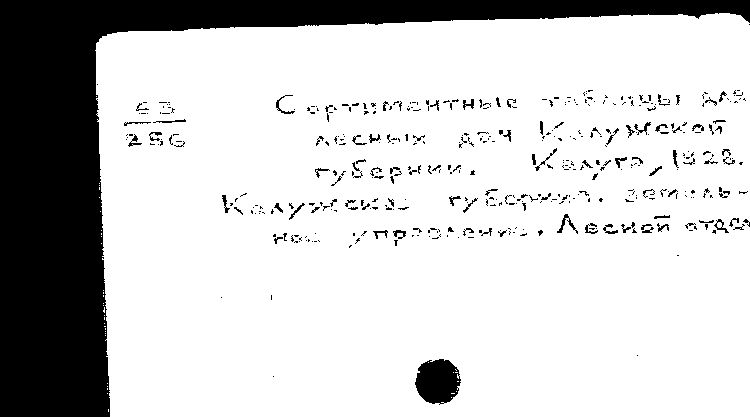 63
256
Сортиментные таблицы для
лесных дач Калужской
губернии. Калуга, 1928.
Калужское губернск. земель-
ное управление. Лесной отдел